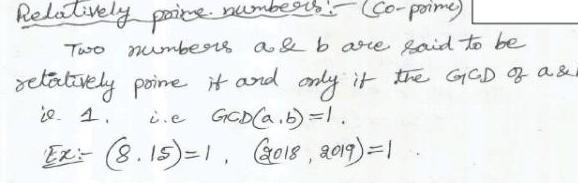 Relatively prime numbers:- (Co-prime)
Two numbers a & b are said to be
relatively prime if and only if the GCD of a &
is 1. i.e GCD(a,b)=1.
Ex:- (8.15)=1, (2018, 2019)=1.